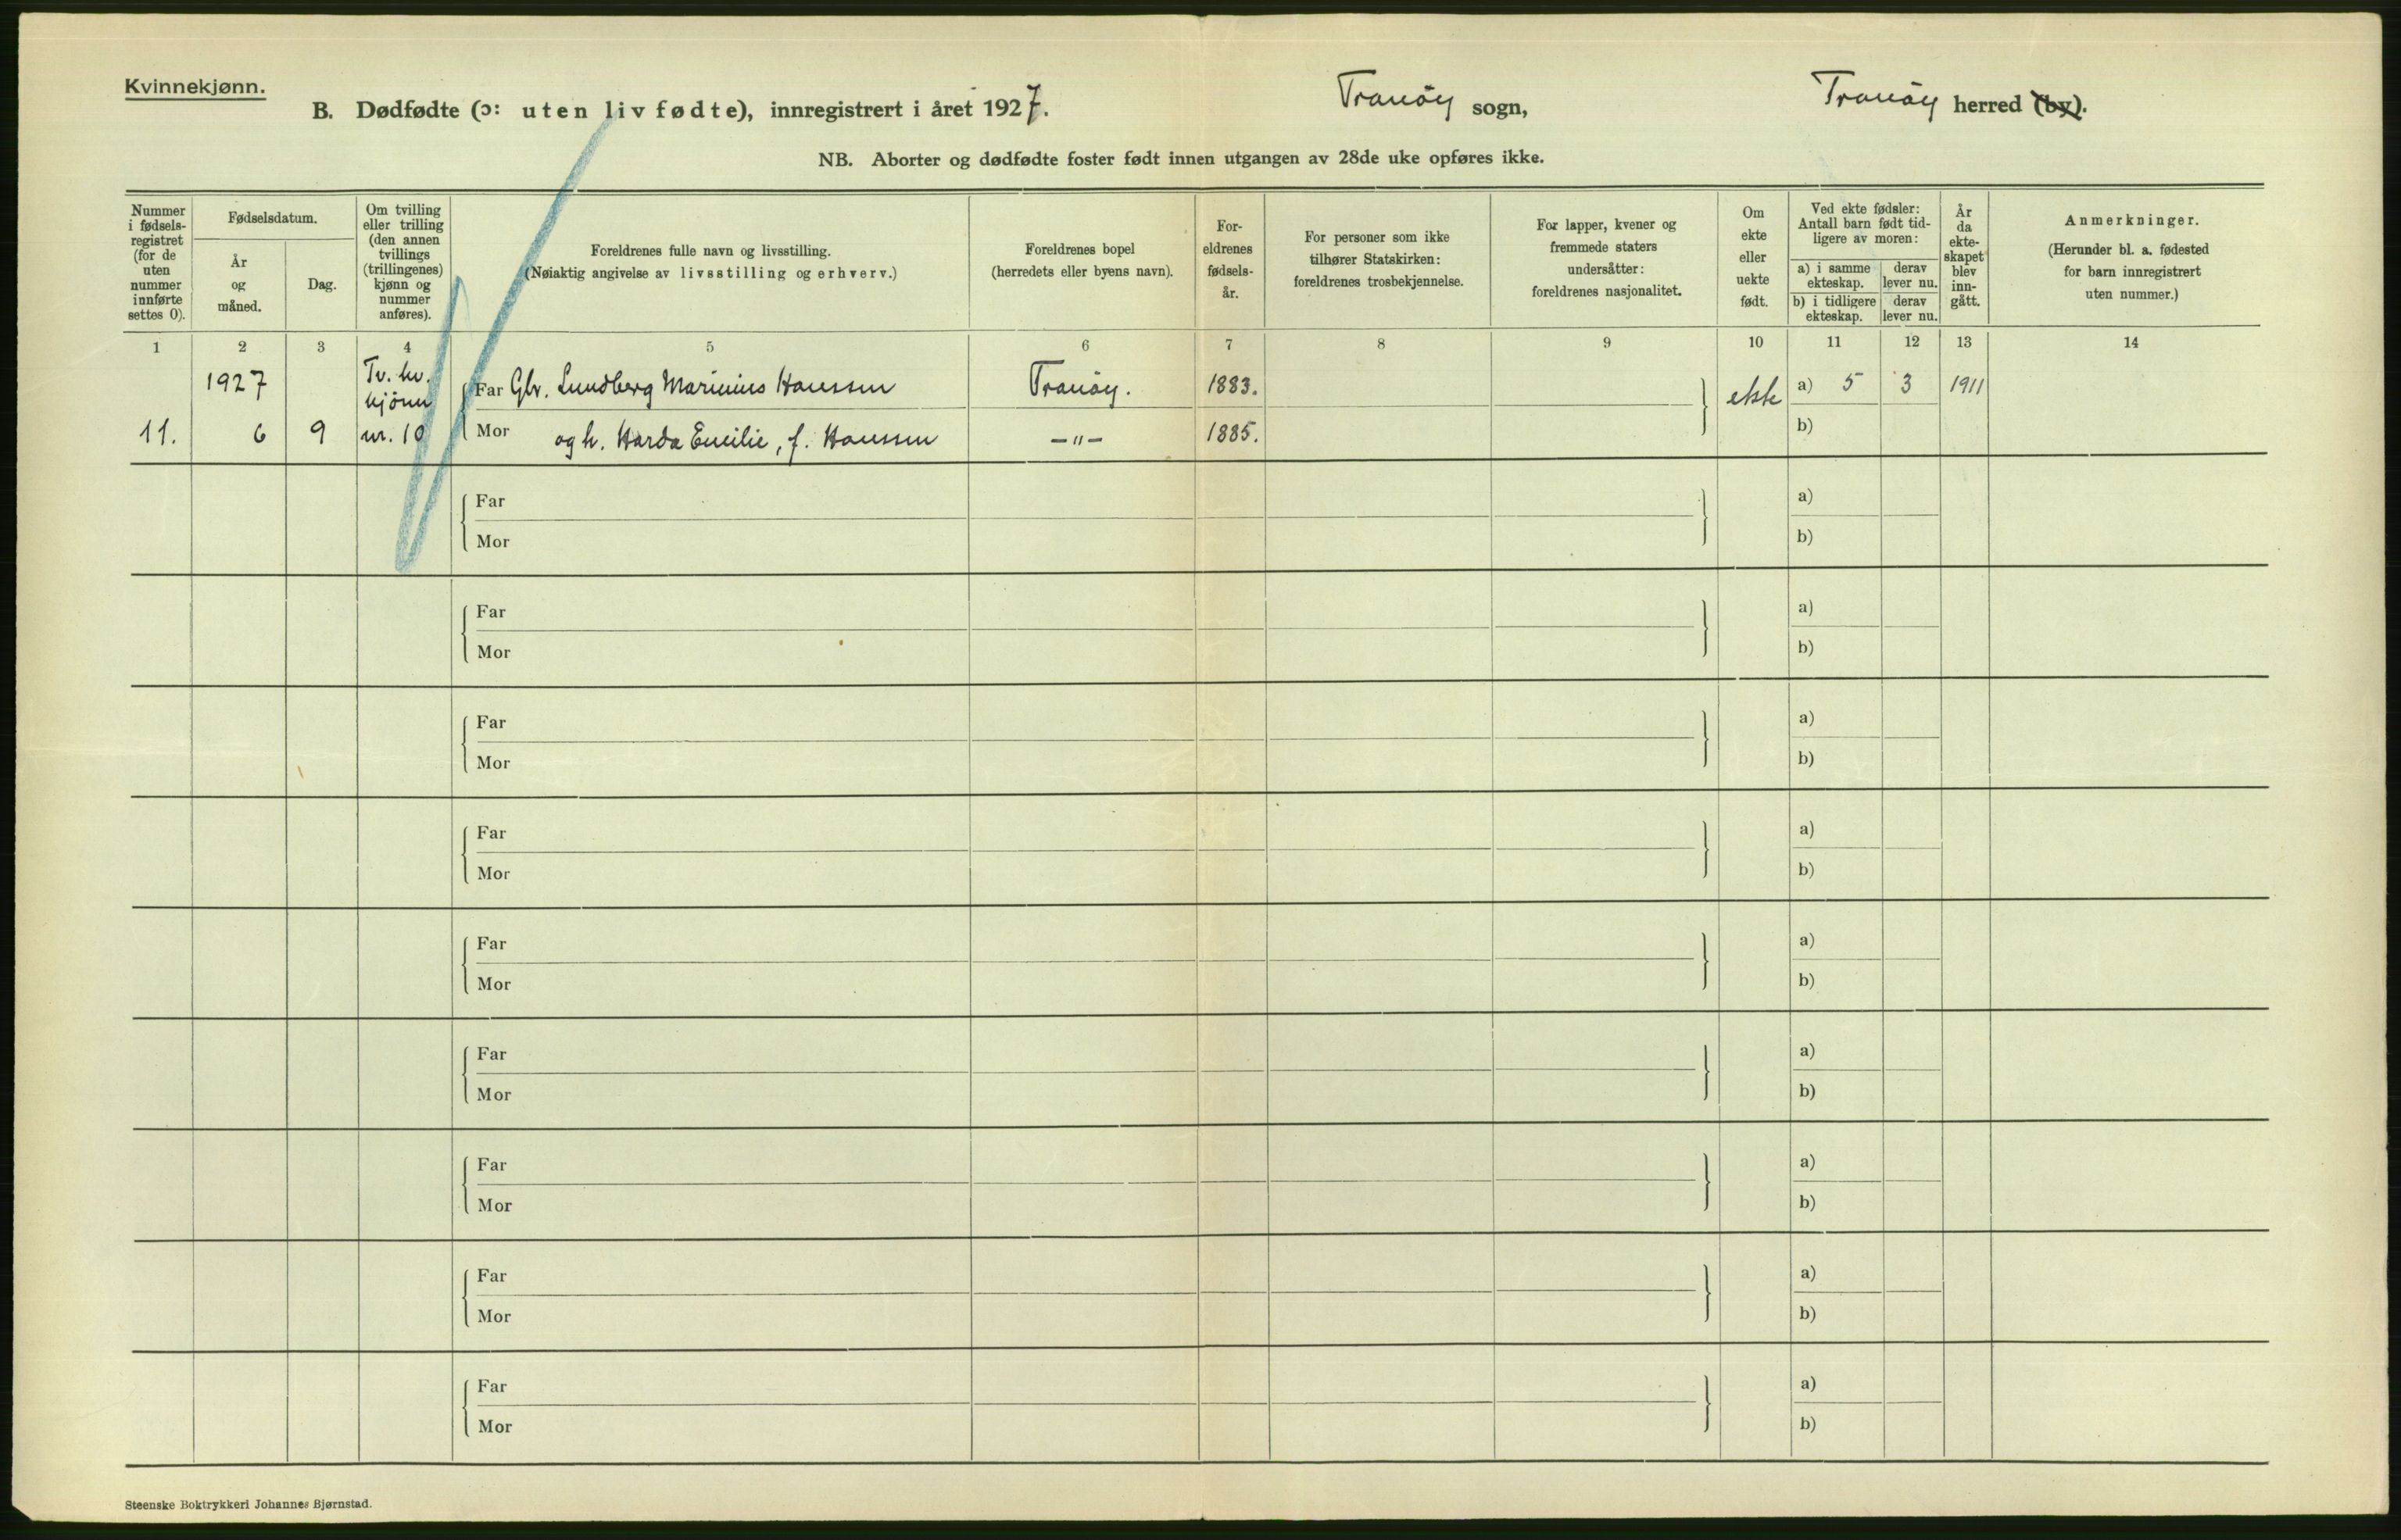 Kvinnekjønn.
B. Dødfødte (ɔ: uten liv fødte), innregistrert i året 1927. Tranöy sogn, Tranöy herred (by).
NB. Aborter og dødfødte foster født innen utgangen av 28de uke opføres ikke.
Nummer i fødsels-registret (for de uten nummer innførte settes 0).
Fødselsdatum.
År og måned.
Dag.
Om tvilling eller trilling (den annen tvillings (trillingenes) kjønn og nummer anføres).
Foreldrenes fulle navn og livsstilling.
(Nøiaktig angivelse av livsstilling og erhverv.)
Foreldrenes bopel
(herredets eller byens navn).
For-eldrenes fødsels-år.
For personer som ikke tilhører Statskirken: foreldrenes trosbekjennelse.
For lapper, kvener og fremmede staters undersåtter: foreldrenes nasjonalitet.
Om ekte eller uekte født.
Ved ekte fødsler: Antall barn født tid-ligere av moren:
a) i samme ekteskap.
derav lever nu.
b) i tidligere ekteskap.
derav lever nu.
År da ekte-skapet blev inn-gått.
Anmerkninger.
(Herunder bl. a. fødested for barn innregistrert uten nummer.)
1 2 3 4 5 6 7 8 9 10 11 12 13 14
1927 Tv. kv. kjönn Far Gbr. Lundberg Marinius Hanssen Tranöy. 1883. ekte a) 5 3 1911
11. 6 9 nr. 10 Mor og h. Harda Emilie, f. Hanssen —"— 1885. b)
Far a)
Mor b)
Far a)
Mor b)
Far a)
Mor b)
Far a)
Mor b)
Far a)
Mor b)
Far a)
Mor b)
Far a)
Mor b)
Far a)
Mor b)
Far a)
Mor b)
Steenske Boktrykkeri Johannes Bjørnstad.